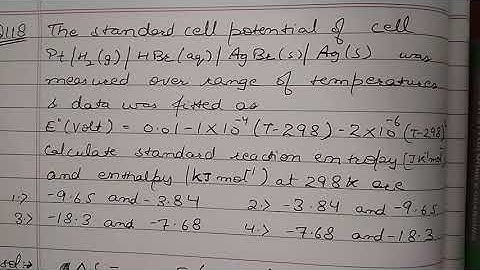 Q118 The standard cell potential of cell
Pt|H₂(g)|HBr(aq)|AgBr(s)|Ag(s) was
measured over range of temperatures
& data was fitted as
E°(Volt) = 0.01-1×10⁻⁴(T-298)-2×10⁻⁶(T-298)
Calculate standard reaction entropy [JK⁻¹mol
and enthalpy (KJ mol⁻¹) at 298k are
1.) -9.65 and -3.84 2.) -3.84 and -9.65
3.) -18.3 and -7.68 4.) -7.68 and -18.3